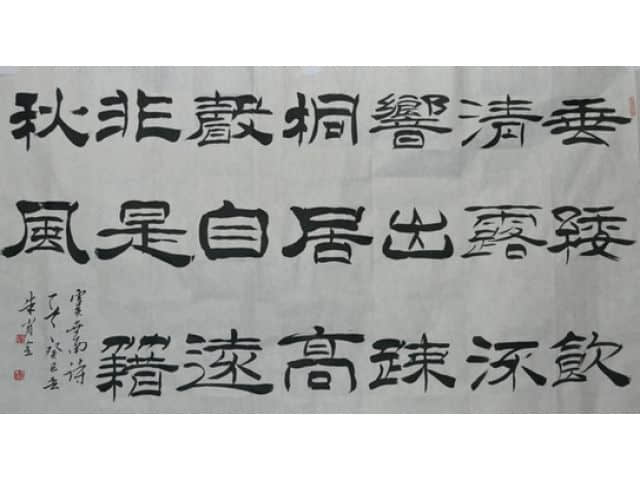 垂緌飲
清露流
響出疎
桐居高
聲自遠
非是籍
秋風
虞世南詩
癸巳
朱肖